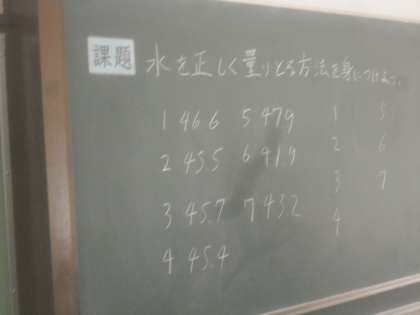 課題 水を正しく量りとる方法を身につけよう。
1 46.6 5 47.9 1 5
2 45.5 6 41.9 2 6
3 45.7 7 43.2 3 7
4 45.4 4